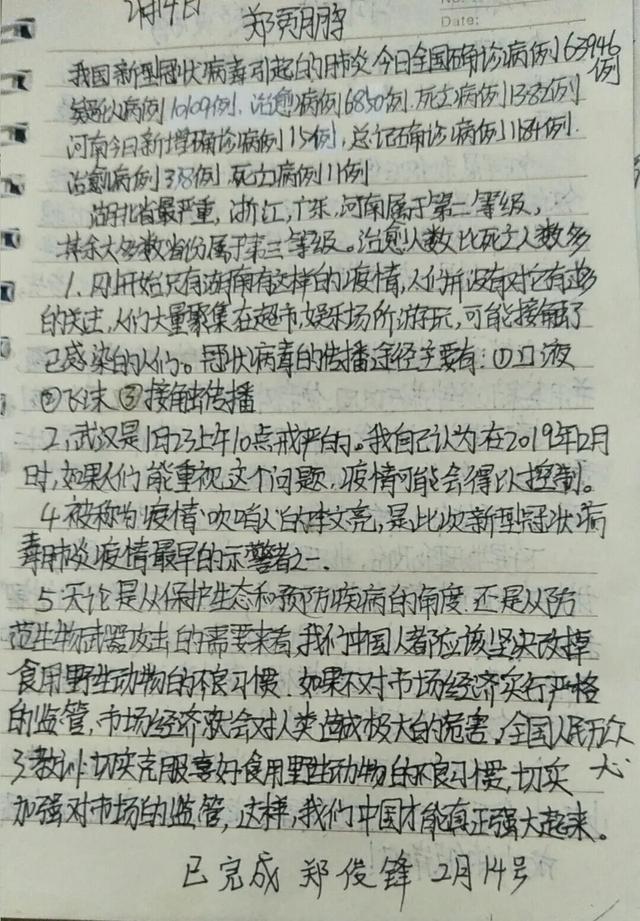 2月14日
Date:
我国新型冠状病毒引起的肺炎今日全国确诊病例63946例
疑似病例10109例,治愈病例6850例,死亡病例1382例.
河南今日新增确诊病例15例,总记确诊病例1184例.
治愈病例318例 死亡病例11例
湖北省最严重,浙江,广东,河南属于第二等级,
其余大多数省份属于第三等级。治愈人数比死亡人数多
1.刚开始只有湖南有这样的疫情,人们并没有对它有过多
的关注,人们大量聚集在超市,娱乐场所游玩,可能接触了
已感染的人们。冠状病毒的传播途经主要有:①口液
②飞沫 ③接触传播
2,武汉是1日23上午10点戒严的。我自己认为在2019年2月
时,如果人们能重视这个问题,疫情可能会得以控制。
4.被称为疫情"吹哨人"的李文亮,是此次新型冠状病
毒肺炎疫情最早的示警者之一.
5.无论是从保护生态和预防疾病的角度,还是从防
范生物武器攻击的需要来看,我们中国人都应该坚决改掉
食用野生动物的不良习惯.如果不对市场经济实行严格
的监管,市场经济就会对人类造成极大的危害。全国人民万众一心
教训切实克服喜好食用野生动物的不良习惯,切实
加强对市场的监管,这样,我们中国才能真正强大起来。
已完成 郑俊锋 2月14号